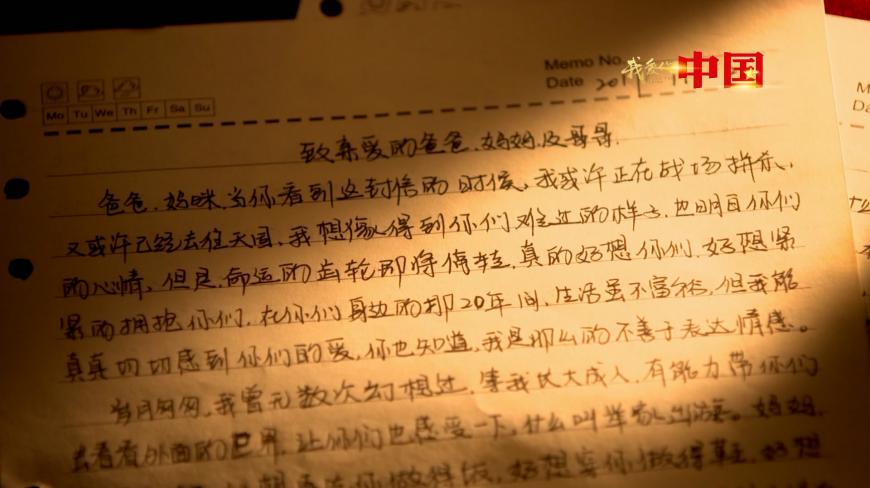 我爱你
中国
Memo No.
Date 201
Mo Tu We Th Fr Sa Su
致亲爱的爸爸、妈妈及哥哥
爸爸、妈咪、当你看到这封信的时候、我或许正在战场拼杀、
又或许已经去往天国、我想像得到你们难过的样子、也明白你们
的心情、但是、命运的齿轮即将停转、真的好想你们、好想紧
紧的拥抱你们、在你们身边的那20年间、生活虽不富裕、但我能
真真切切感到你们的爱、你也知道、我是那么的不善于表达情感。
岁月匆匆、我曾无数次幻想过、等我长大成人、有能力带你们
去看看外面的世界、让你们也感受一下、什么叫举家出游。妈妈、
想再吃你做得饭、好想穿你做得
M
Da